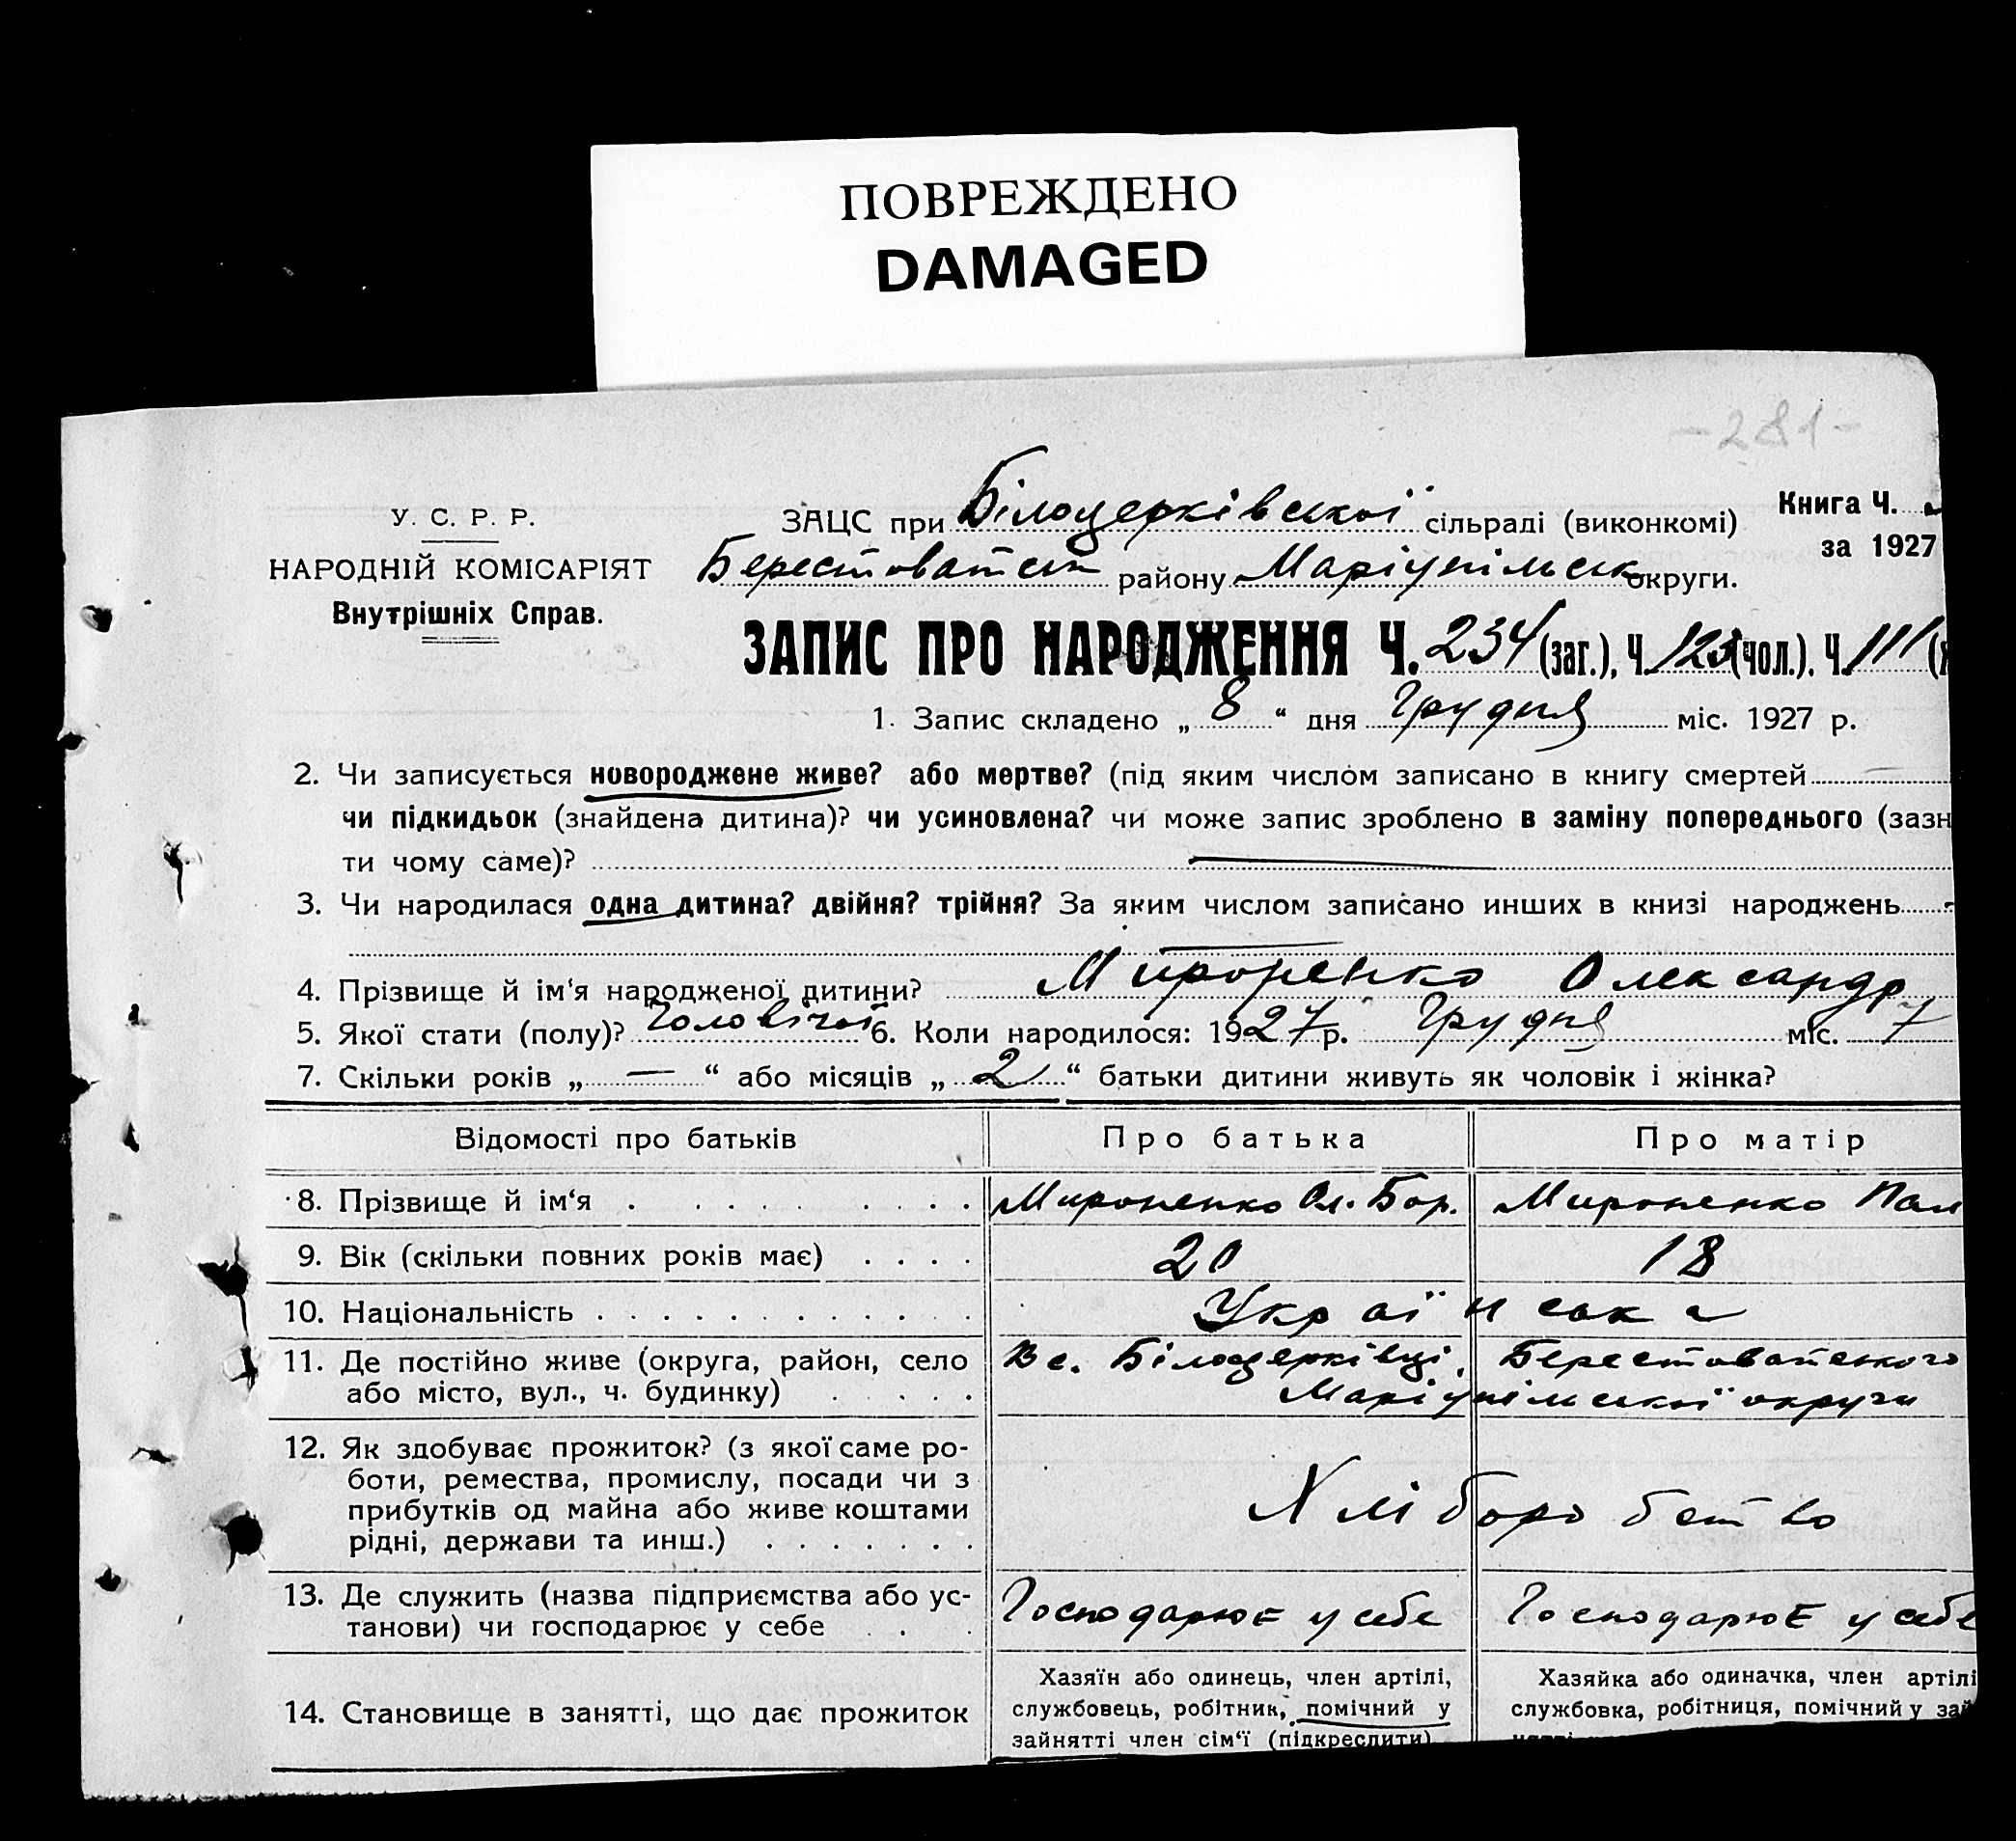 ПОВРЕЖДЕНО
DAMAGED
-281-
У. С. Р. Р.
НАРОДНІЙ КОМІСАРІЯТ
Внутрішніх Справ.
ЗАЦС при Білоцерківської сільраді (виконкомі)
Берестоватськ району Маріупільськ округи.
Книга Ч.
за 1927
ЗАПИС ПРО НАРОДЖЕННЯ Ч. 234 (заг.), Ч. 123 (чол.). Ч. 111
1. Запис складено „ 8 “ дня Грудня міс. 1927 р.
2. Чи записується новороджене живе? або мертве? (під яким числом записано в книгу смертей
чи підкидьок (знайдена дитина)? чи усиновлена? чи може запис зроблено в заміну попереднього (зазн
ти чому саме)?
3. Чи народилася одна дитина? двійня? трійня? За яким числом записано инших в книзі народжень
4. Прізвище й ім‘я народженої дитини? Мироненко Олександр
5. Якої стати (полу)? Чоловічої 6. Коли народилося: 1927 р. Грудня міс. 7
7. Скільки років „ — “ або місяців „ 2 “ батьки дитини живуть як чоловік і жінка?
Відомості про батьків Про батька Про матір
8. Прізвище й ім‘я Мироненко Ол. Бор. Мироненко Пал
9. Вік (скільки повних років має) 20 18
10. Національність Українська
11. Де постійно живе (округа, район, село В с. Білоцерківці, Берестоватського
або місто, вул., ч. будинку) Маріупільської округи
12. Як здобуває прожиток? (з якої саме ро-
боти, ремества, промислу, посади чи з
прибутків од майна або живе коштами
рідні, держави та инш.) Хліборобство
13. Де служить (назва підприємства або ус-
танови) чи господарює у себе Господарює у себе Господарює у себе
14. Становище в занятті, що дає прожиток
Хазяїн або одинець, член артілі,
службовець, робітник, помічний у
зайнятті член сім‘ї (підкреслити)
Хазяйка або одиначка, член артілі
службовка, робітниця, помічний у зай